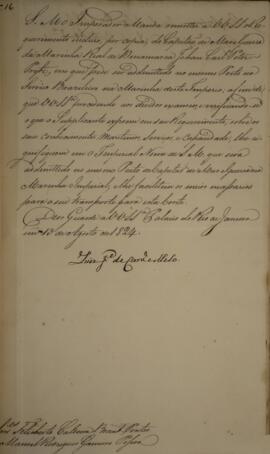 S. M. o Imperador Manda remetter a V. S.ª o Re-
querimento incluso, por copia, do Capitão de Mar e Guerra
da Marinha Real de Dinamarca, Johan Carl Peter
em que pede ser admittido no mesmo Posto no
Serviço Brasileiro na Marinha deste Imperio, afim de
que V. S.ª procedendo aos devidos exames, e verificando-se
o que o Supplicante expoem em seu Requerimento, sobre os
seus conhecimentos Maritimos, Serviço, e Capacidade, lhe
em o Imperial Nome de S. M. que será
admittido no mesmo Posto de Capitão de Mar e Guerra da
Marinha Imperial, e lhe facilite os meios necessarios
para o seu transporte para esta Corte.
Deos Guarde a V. S.ª Palacio do Rio de Janeiro
em 13 de Agosto de 1824.
Luiz J.e de Carv.º e Mello
Felisberto Caldeira Brant Pontes
Manoel Rodrigues Gameiro Pessoa